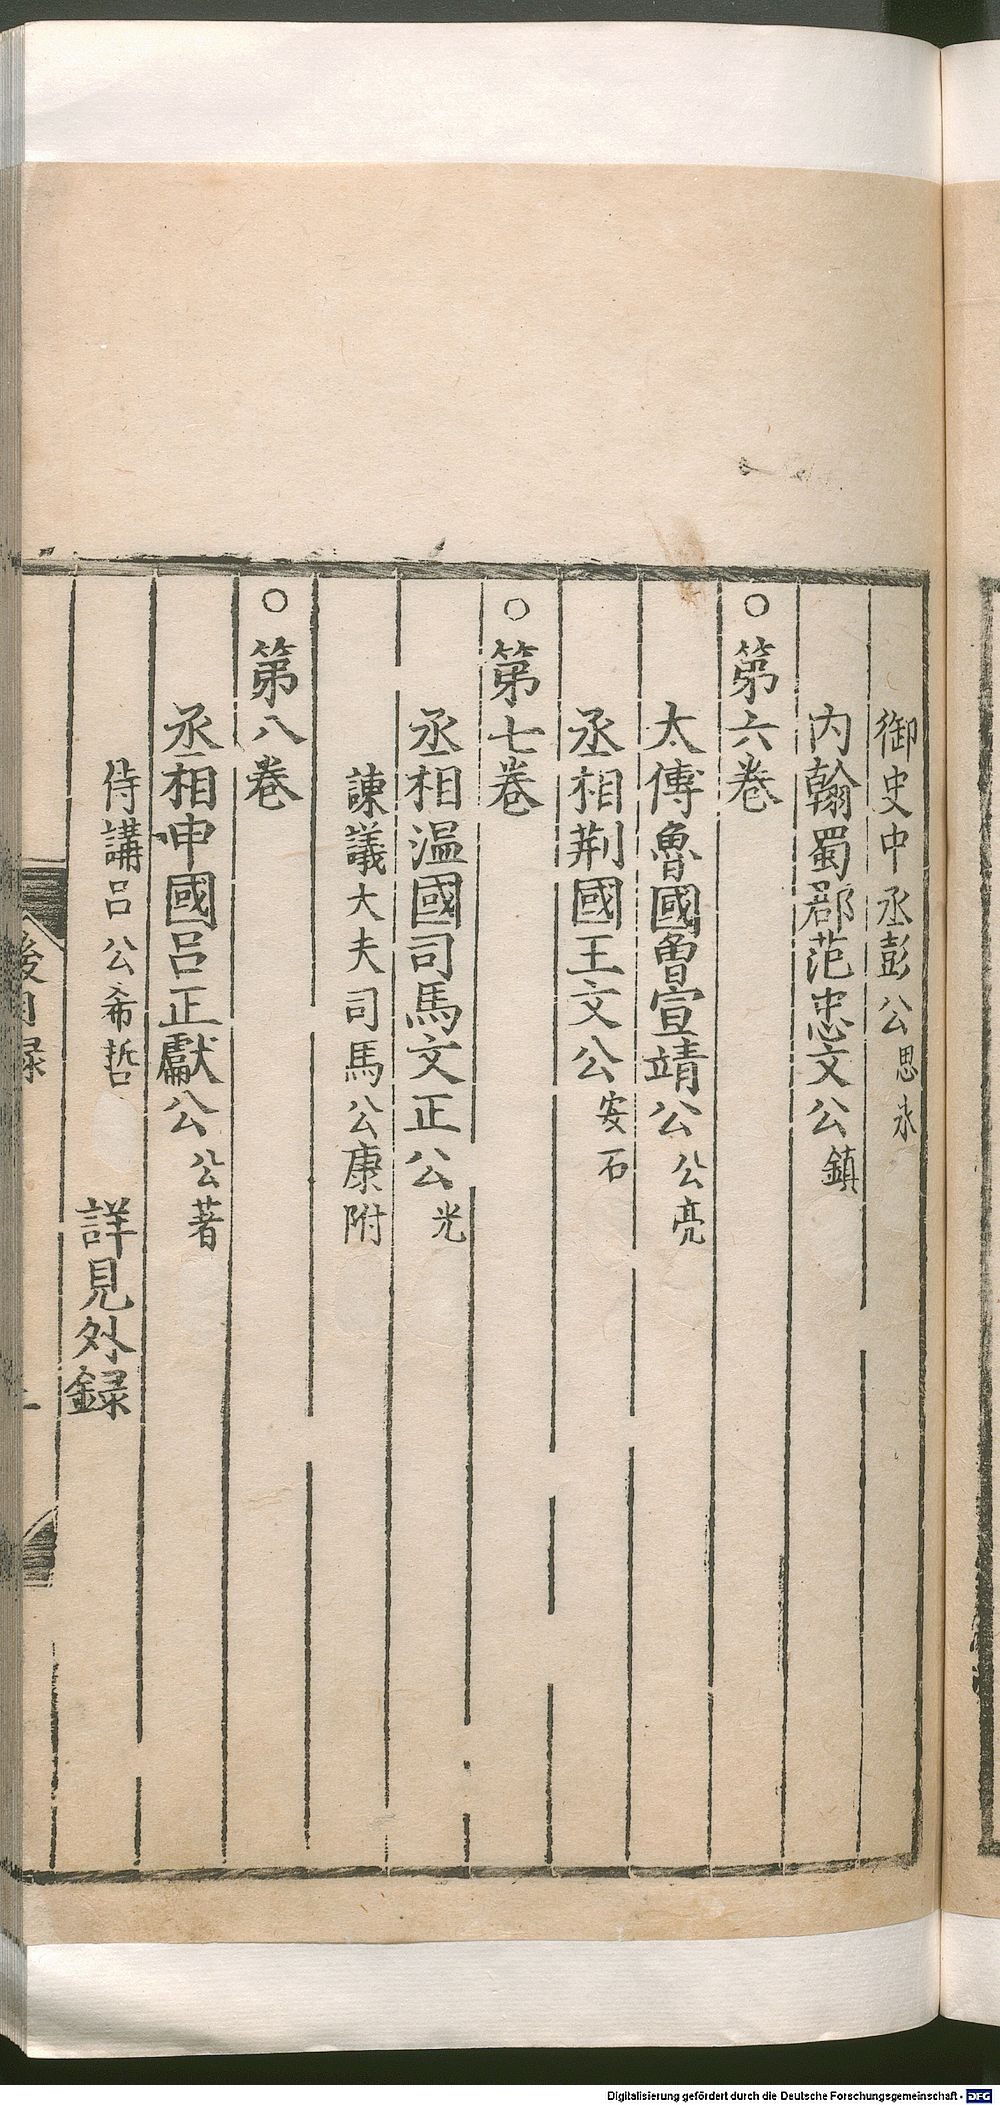 御史中丞彭公思永
内翰蜀郡范忠文公鎮
○第六卷
太傅魯國魯宣靖公公亮
丞相荆國王文公安石
○第七卷
丞相溫國司馬文正公光
諫議大夫司馬公康附
○第八卷
丞相申國呂正獻公公著
侍講呂公希哲 詳見外録
Digitalisierung gefördert durch die Deutsche Forschungsgemeinschaft - DFG